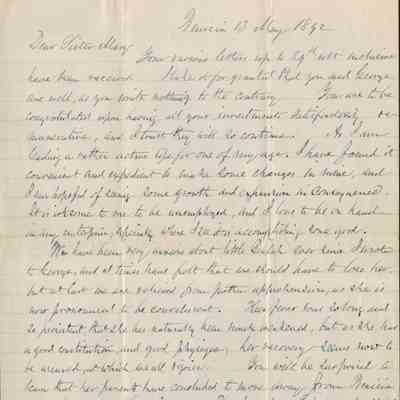 13 May 1892
Dear Sister Mary
Your various letters up to 29th ult inclusive
have been received I take it for granted that you and George
are well, as you write nothing to the contrary You are to be
congratulated upon having all your investments satisfactorily re-
munerative, and I trust they will so continue. As I am
leading a rather active life for one of my age. I have found it
convenient and expedient to make some changes in mine, and
I am hopeful of seeing some growth and expansion in consequence.
It is irksome to me to be unemployed, and I love to be on hand
in my enterprise, especially where I see it is accomplishing some good.
We have been very anxious about little ever since I wrote
to George, and at times have felt that we should have to lose her,
but at last we are relieved from further apprehension, as she is
now pronounced to be convalescent. Her fever was so long and
so persistent that she has naturally been much weakened, but as she has
a good constitution, and good physique, her recovery seems now to
be assured, at which we all rejoice. You will be surprised to
learn that her parents have concluded to move away from